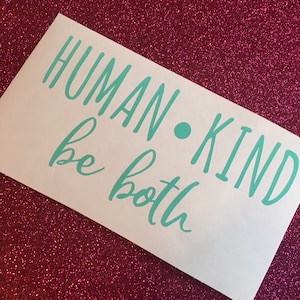 HUMAN • KIND
be both